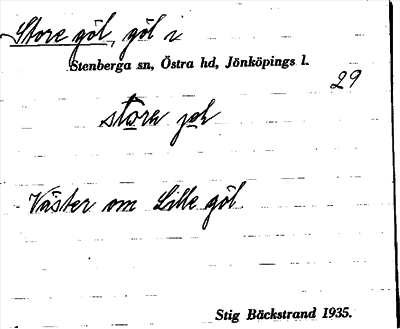 Store göl, göl i
Stenberga sn, Östra hd, Jönköpings l.
29
stora
Väster om Lille göl
Stig Bäckstrand 1935.